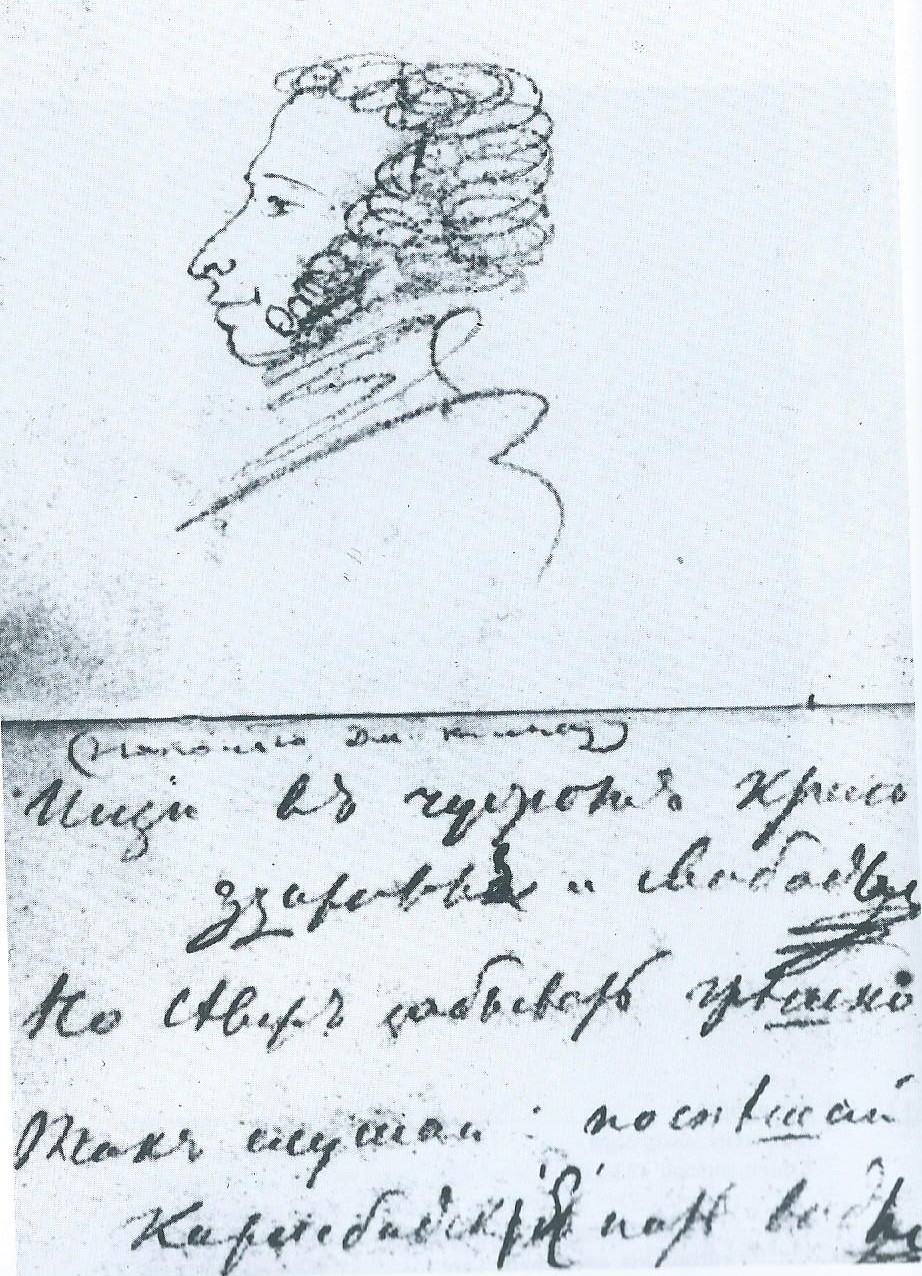 (Николаю Дм. Киселеву)
Ищи въ чужомъ краю
здоровья и свободы
Но Сѣверъ забывать грѣшно
Такъ слушай: поспѣшай
Карлсбадскія пить воды